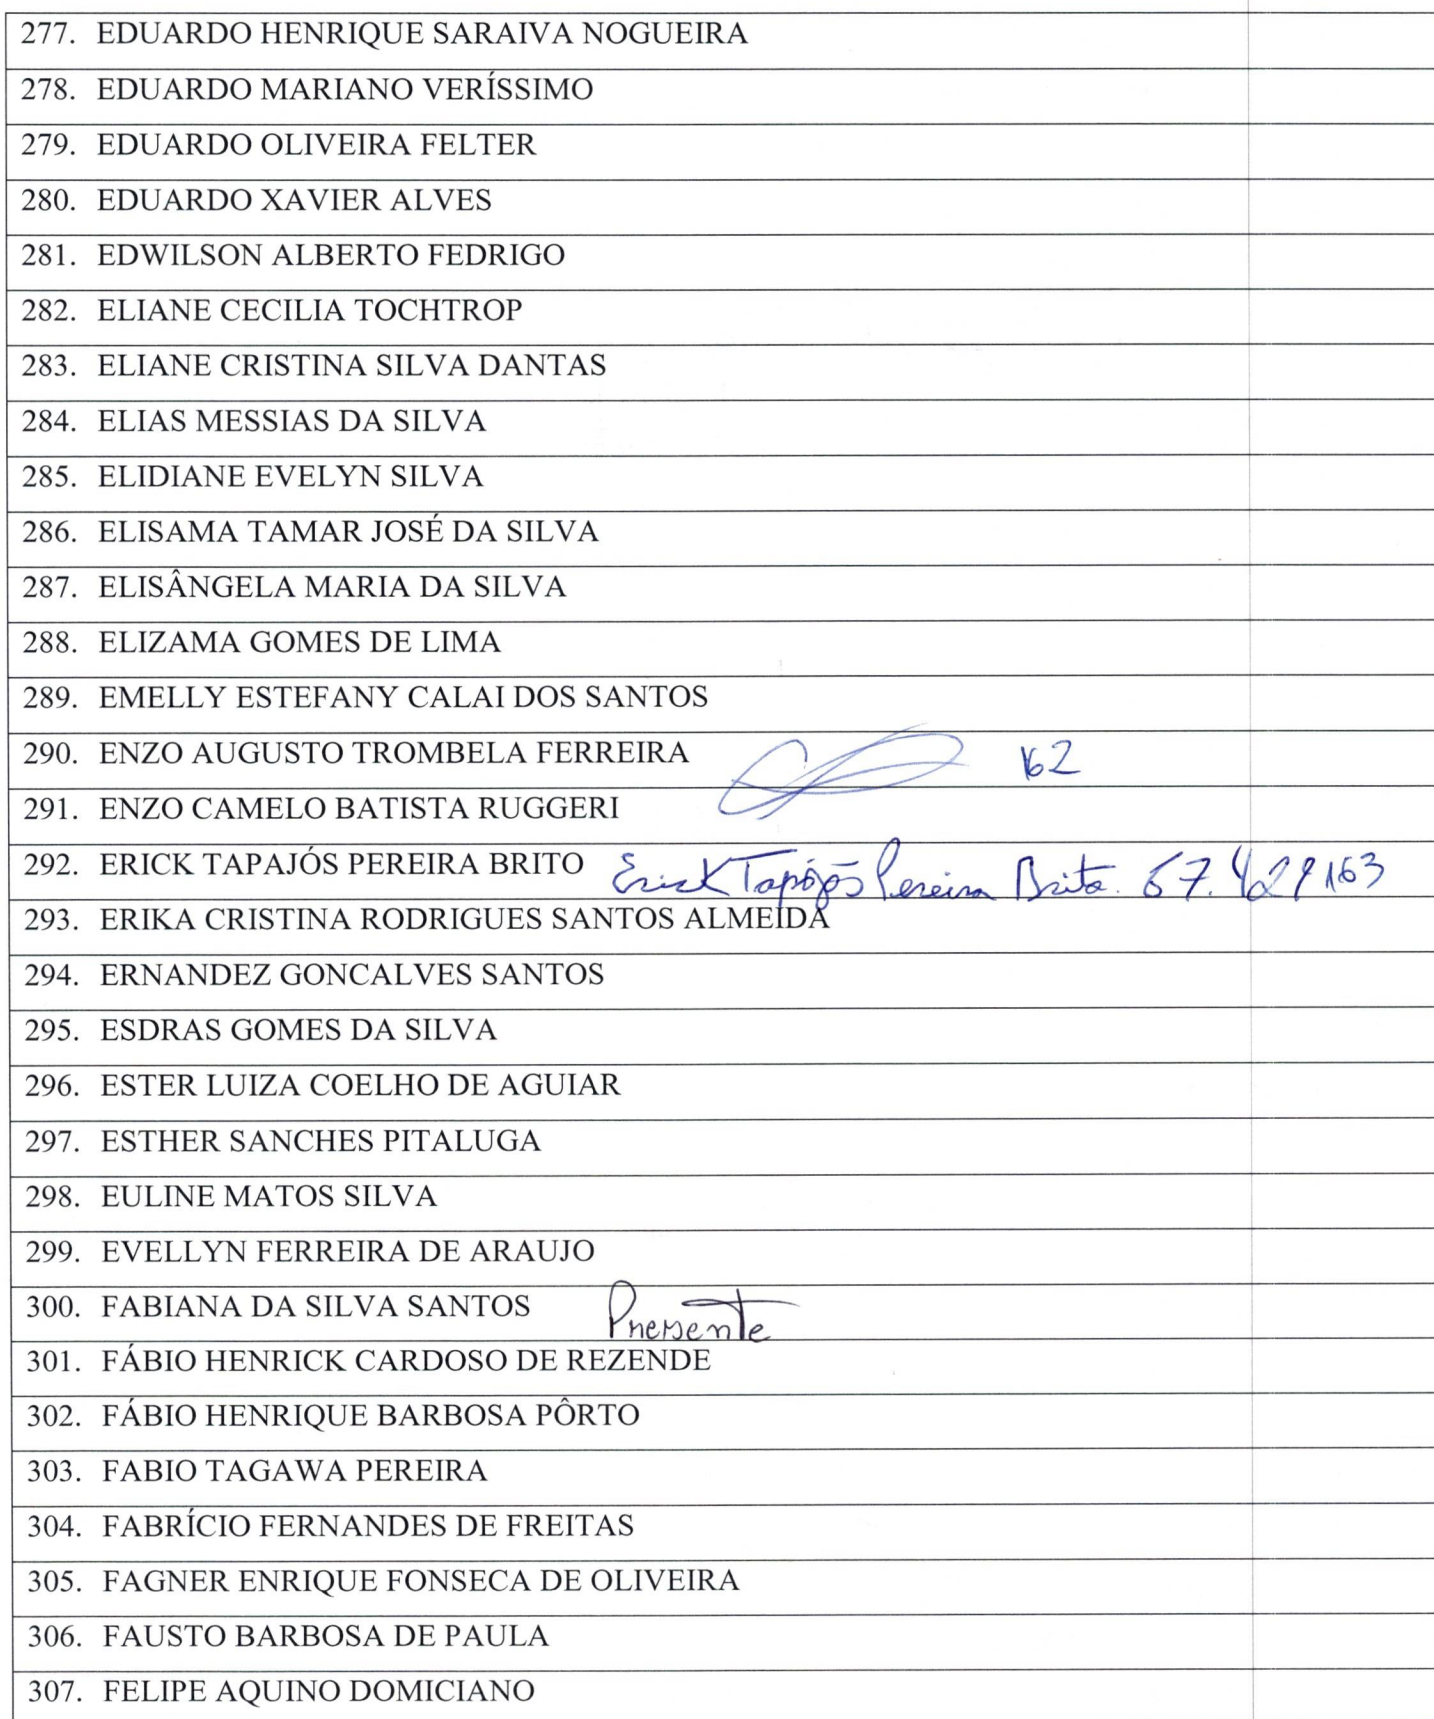 277. EDUARDO HENRIQUE SARAIVA NOGUEIRA
278. EDUARDO MARIANO VERÍSSIMO
279. EDUARDO OLIVEIRA FELTER
280. EDUARDO XAVIER ALVES
281. EDWILSON ALBERTO FEDRIGO
282. ELIANE CECILIA TOCHTROP
283. ELIANE CRISTINA SILVA DANTAS
284. ELIAS MESSIAS DA SILVA
285. ELIDIANE EVELYN SILVA
286. ELISAMA TAMAR JOSÉ DA SILVA
287. ELISÂNGELA MARIA DA SILVA
288. ELIZAMA GOMES DE LIMA
289. EMELLY ESTEFANY CALAI DOS SANTOS
290. ENZO AUGUSTO TROMBELA FERREIRA 162
291. ENZO CAMELO BATISTA RUGGERI
292. ERICK TAPAJÓS PEREIRA BRITO Erick Tapajós Pereira Brito.
293. ERIKA CRISTINA RODRIGUES SANTOS ALMEIDA
294. ERNANDEZ GONCALVES SANTOS
295. ESDRAS GOMES DA SILVA
296. ESTER LUIZA COELHO DE AGUIAR
297. ESTHER SANCHES PITALUGA
298. EULINE MATOS SILVA
299. EVELLYN FERREIRA DE ARAUJO
300. FABIANA DA SILVA SANTOS Presente
301. FÁBIO HENRICK CARDOSO DE REZENDE
302. FÁBIO HENRIQUE BARBOSA PÔRTO
303. FABIO TAGAWA PEREIRA
304. FABRÍCIO FERNANDES DE FREITAS
305. FAGNER ENRIQUE FONSECA DE OLIVEIRA
306. FAUSTO BARBOSA DE PAULA
307. FELIPE AQUINO DOMICIANO